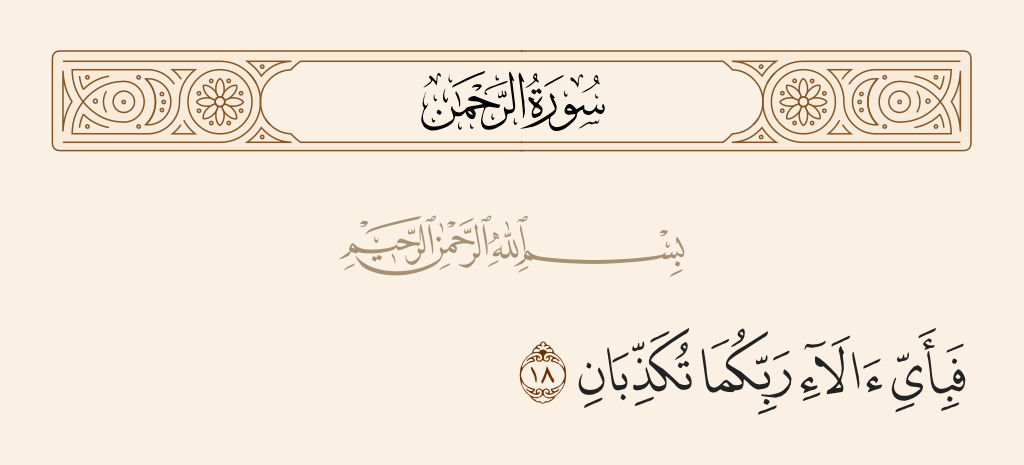 سُورَةُ الرَّحْمَٰن
بِسْمِ ٱللَّهِ ٱلرَّحْمَٰنِ ٱلرَّحِيمِ
فَبِأَيِّ ءَالَآءِ رَبِّكُمَا تُكَذِّبَانِ ١٨